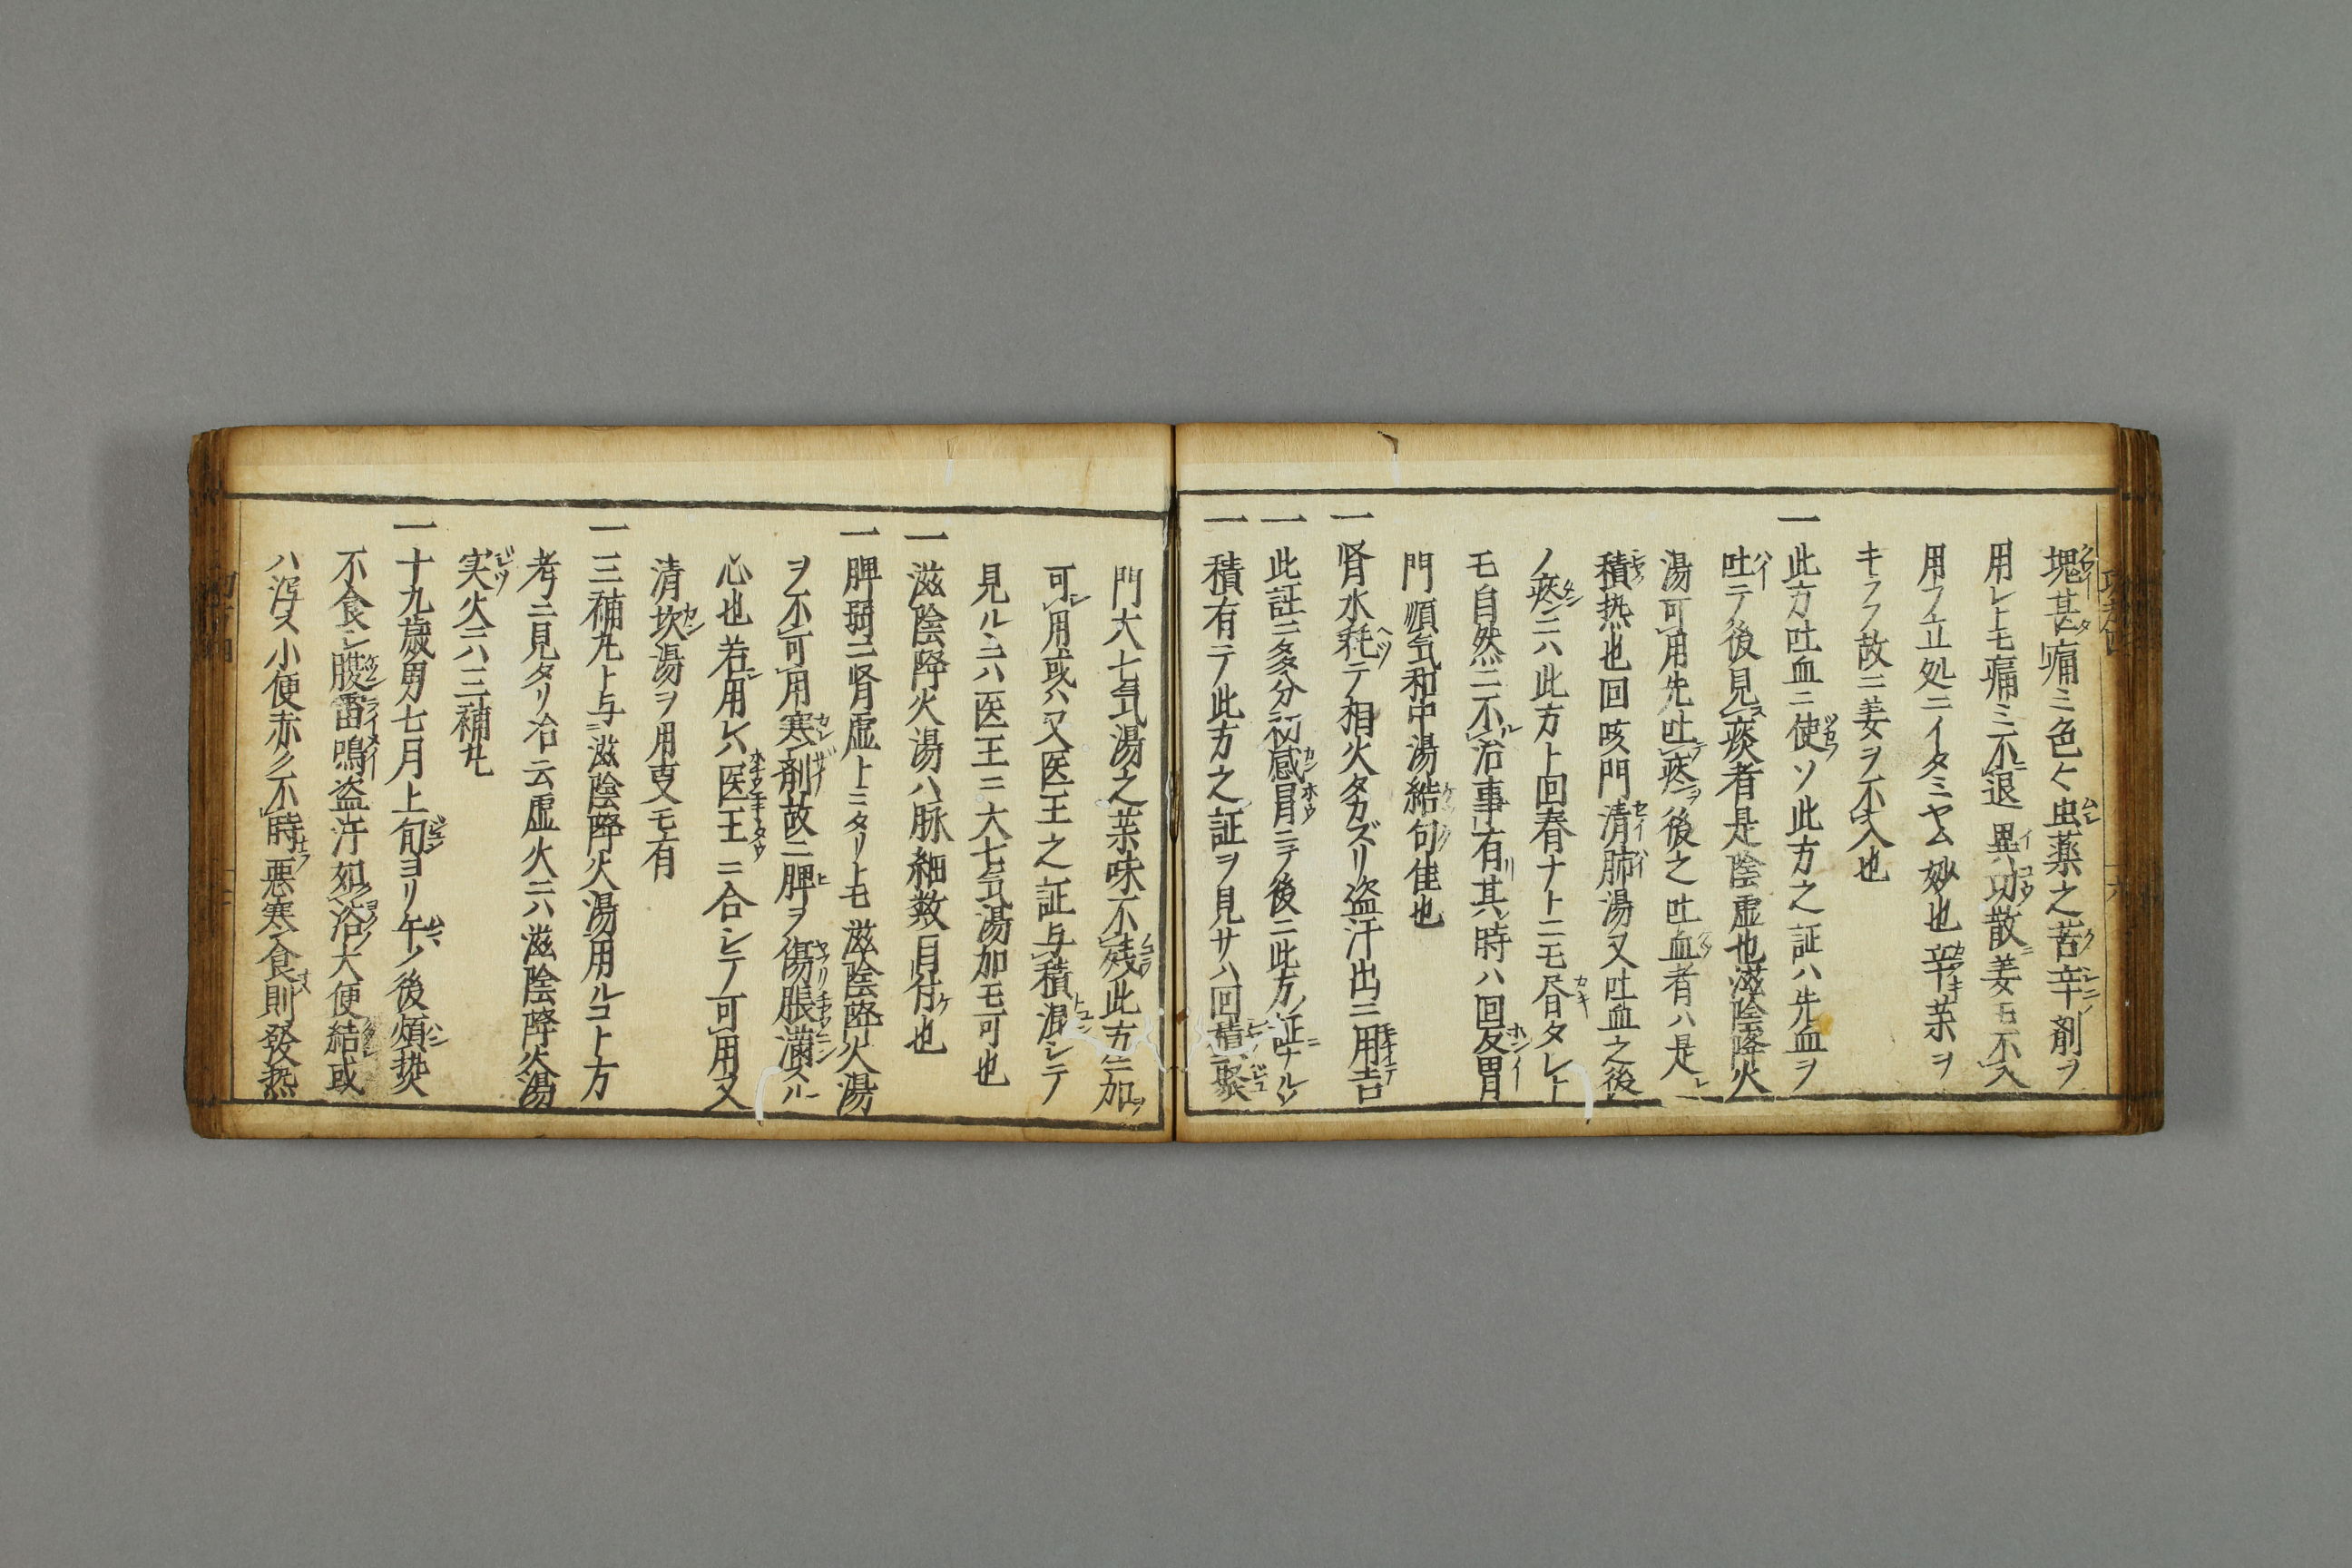 塊甚痛ミ色〻虫薬之苦辛ノ剤ヲ
用レトモ痛ミ不退異功散ニ姜モ不入
用フ立処ニイタミヤム妙也辛キ薬ヲ
キラフ故ニ姜ヲ不入也
一此方吐血ニ使ソ此方之証ハ先血ヲ
吐テ後見痰者是陰虚也滋陰降火
湯可用先吐痰ヲ後之吐血者ハ是レ
積热也回咳門清肺湯又吐血之後
ノ痰ニハ此方ト回春ナトニモ昏タレト
モ自然ニ不治事有リ其時ハ回反胃
門順気和中湯結句佳也
一腎水耗テ相火タカズリ盗汗出ニ用吉
一此証ニ多分初感冒ニテ後ニ此方ノ証ニナルソ
一積有テ此方之証ヲ見サハ回積聚
門大七気湯之薬味不残此方ニ加ヲ
可用或ハ又医王之証与積混シテ
見ルニハ医王ニ大七気湯加モ可也
一滋陰降火湯ハ脉細数目付ケ也
一脾弱ニ腎虚トミタリトモ滋陰降火湯
ヲ不可用寒剤故ニ脾ヲ傷脹満スル
心也若用ヒハ医王ニ合シテ可用又
清坎湯ヲ用叓モ有
一三補丸ト与滋陰降火湯用ルコト方
考ニ見タリ治云虚火ニハ滋陰降火湯
実火ニハ三補丸
一十九歳男七月上旬ヨリ午ノ後煩热
不食シ腹雷鳴盗汗如浴大便結或
ハ瀉ス小便赤ク不時悪寒食則發热